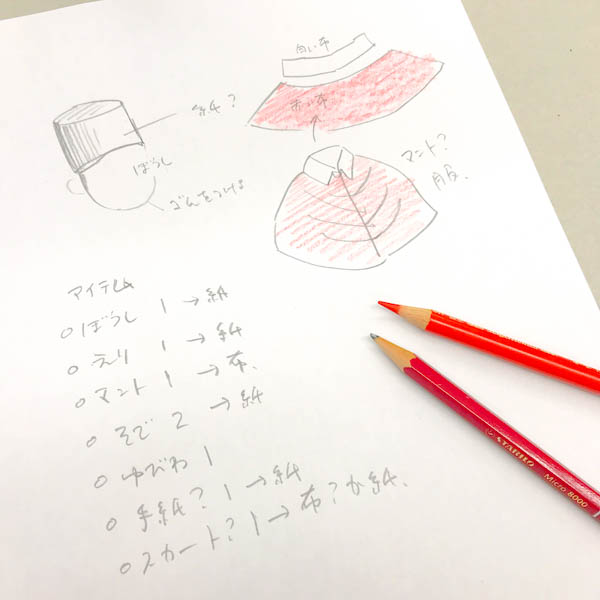 白い布
赤い布
紙?
ぼうし
ゴムをつける
マント?
服、
アイテム
○ぼうし 1 → 紙
○えり 1 → 紙
○マント 1 → 布、
○そで 2 → 紙
○ゆびわ 1
○手紙? 1 → 紙
○スカート? 1 → 布?か紙、
STABILO Micro 8000